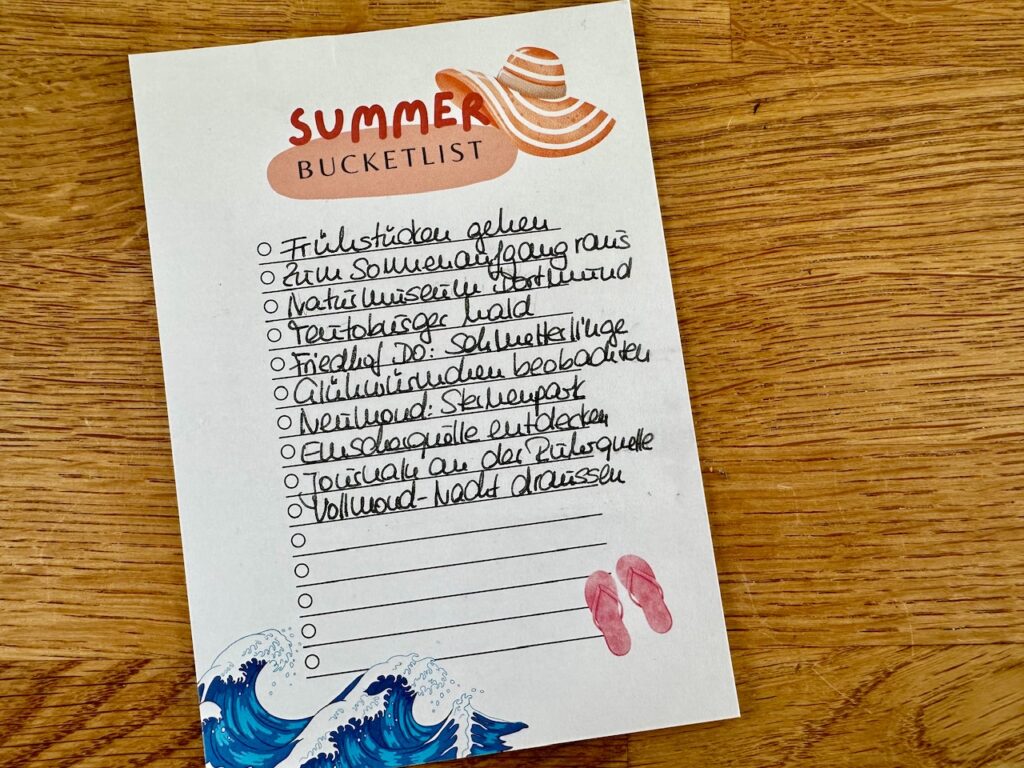 SUMMER
BUCKETLIST
Frühstücken gehen
Zum Sonnenaufgang raus
Naturmuseum Dortmund
Teutoburger Wald
Friedhof DO: Schmetterlinge
Glühwürmchen beobachten
Neumond: Sternenpark
Emscherquelle entdecken
Journaln an der Ruhrquelle
Vollmond-Nacht draussen